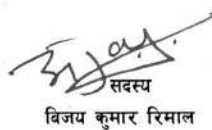 सदस्य
बिजय कुमार रिमाल